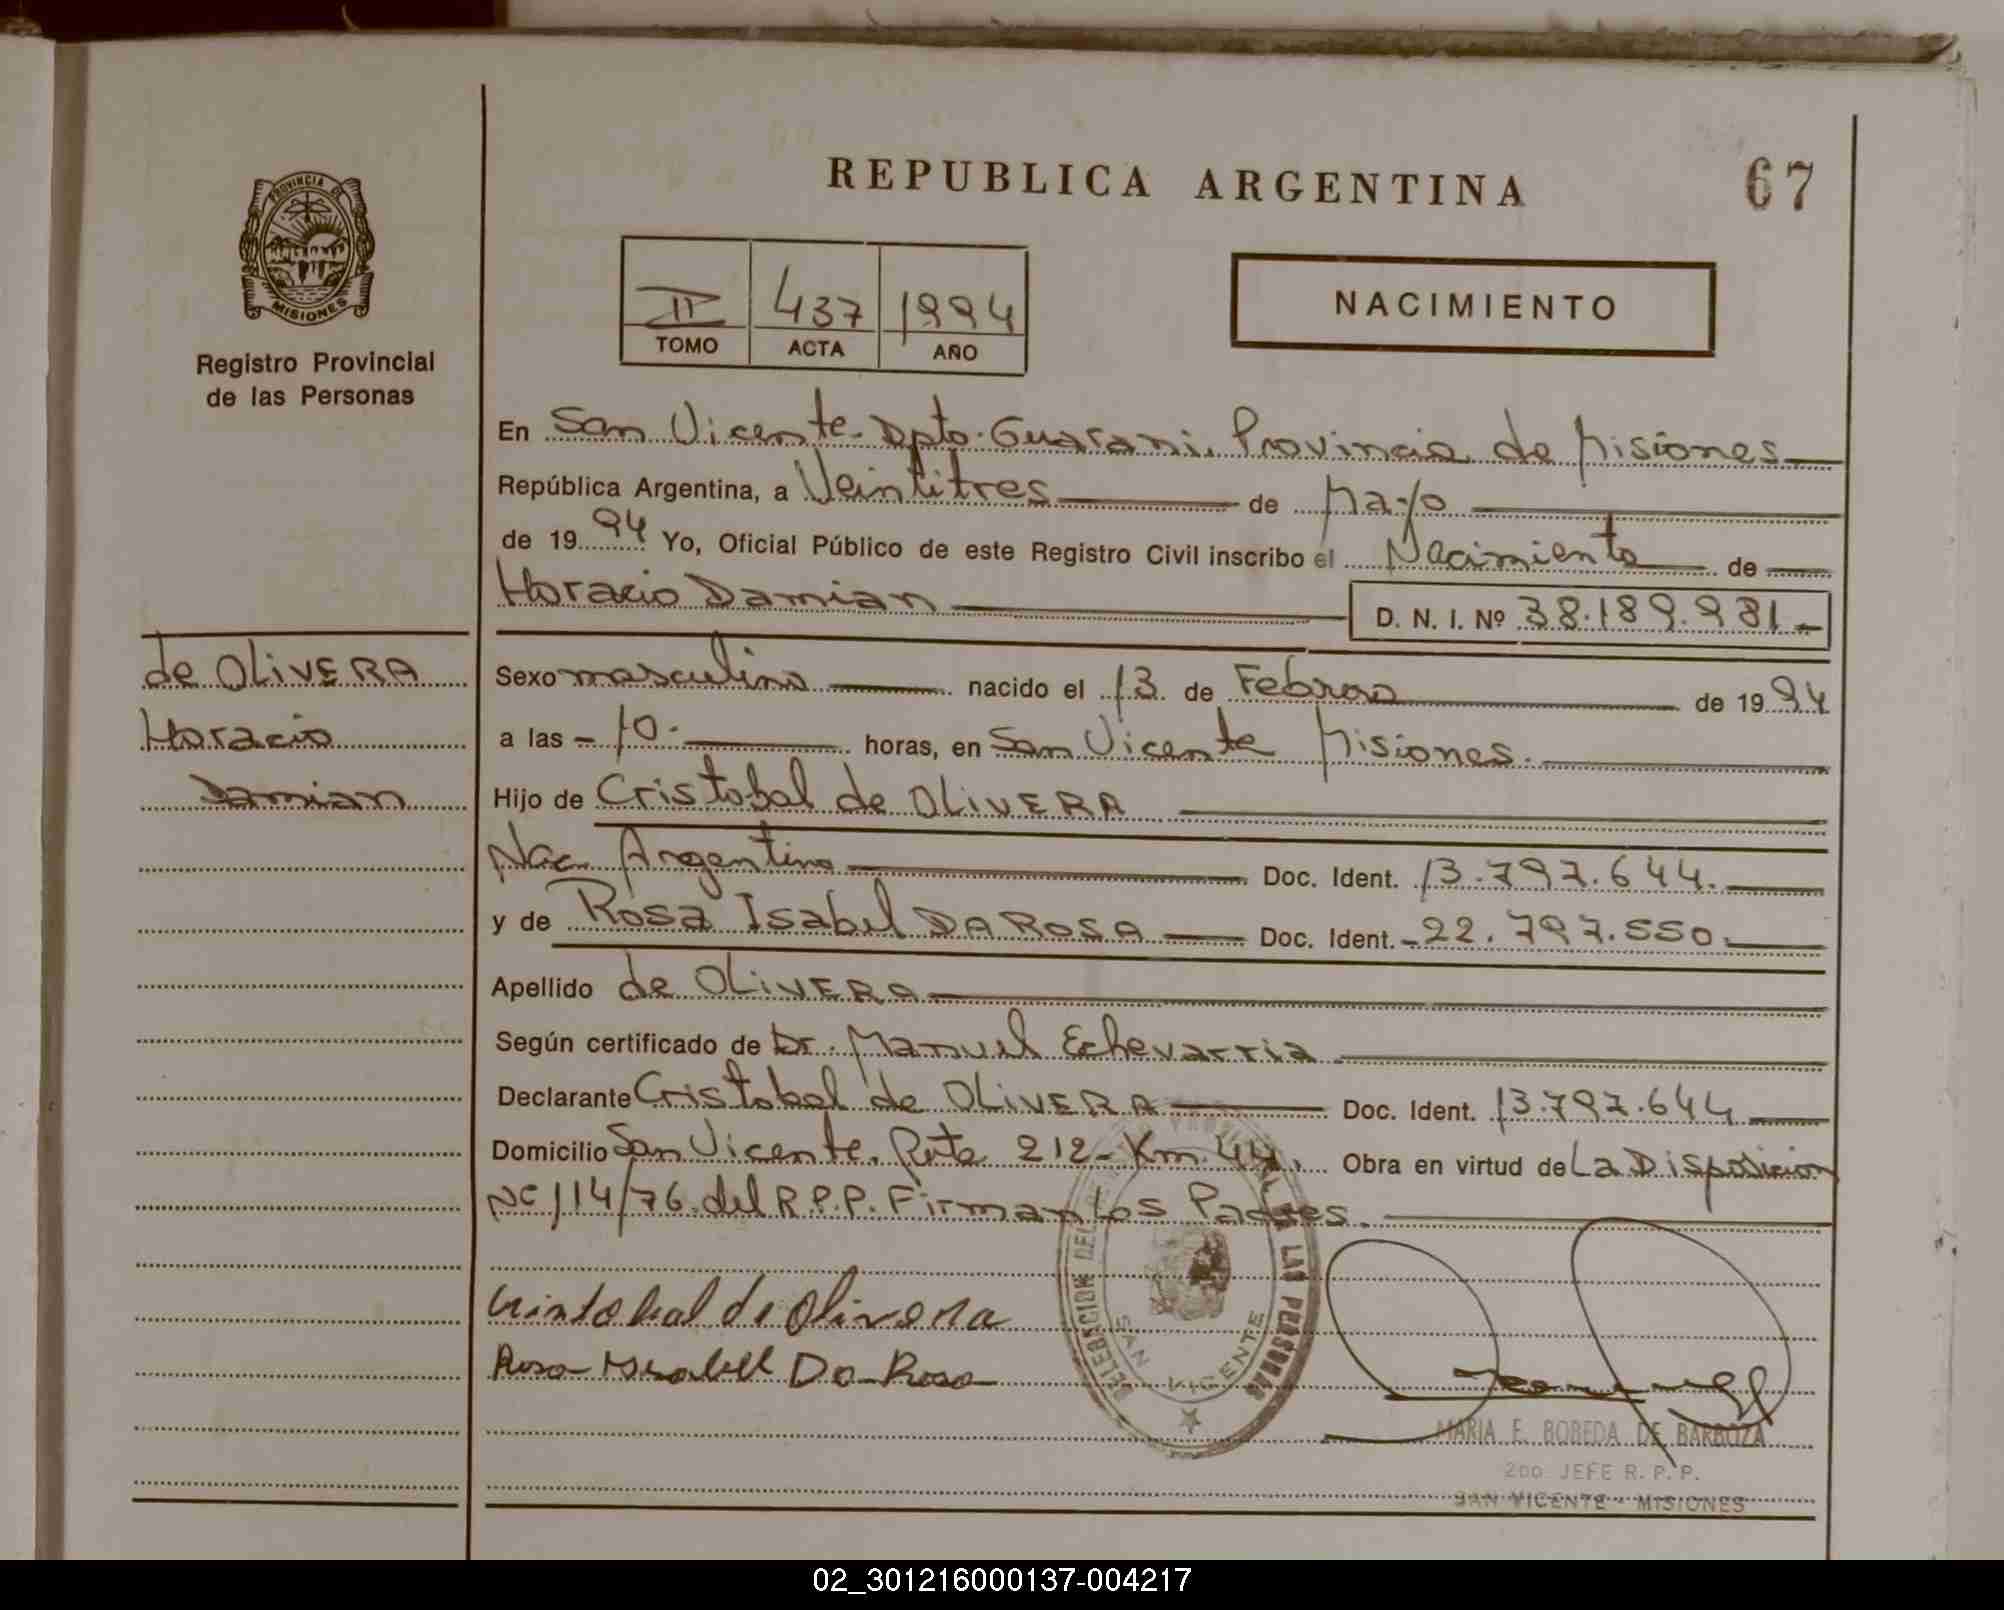 REPUBLICA ARGENTINA
67
PROVINCIA DE
MISIONES
Registro Provincial
de las Personas
II 437 1994
TOMO ACTA AÑO
NACIMIENTO
En San Vicente Dpto. Guarani. Provincia de Misiones
República Argentina, a Veintitres de Mayo
de 1994 Yo, Oficial Público de este Registro Civil inscribo el Nacimiento de
Horacio Damian D. N. I. Nº 38.189.981
de OLIVERA
Horacio
Damian
Sexo masculino nacido el 13 de Febrero de 1994
a las 10. horas, en San Vicente Misiones.
Hijo de Cristobal de OLIVERA
Nac. Argentino Doc. Ident. 13.797.644.
y de Rosa Isabel DA ROSA Doc. Ident. 22.797.550.
Apellido de OLIVERA
Según certificado de Dr. Manuel Echevarria
Declarante Cristobal de OLIVERA Doc. Ident. 13.797.644
Domicilio San Vicente. Ruta 212 - Km. 44. Obra en virtud de La Disposicion
114/76 del R.P.P. Firman Los Padres.
Cristobal de Olivera
Rosa Isabel Da Rosa
DELEGACION DE LAS PERSONAS
SAN VICENTE
MARIA E. BOBEDA DE BARBOZA
2do JEFE R. P. P.
SAN VICENTE - MISIONES
02_301216000137-004217